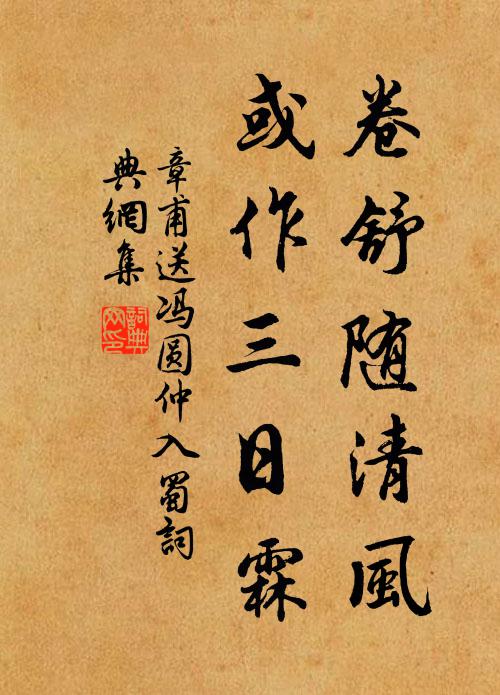 卷舒随清風
或作三日霖
章甫送冯圆仲入蜀詞
典網集
詞典
网印